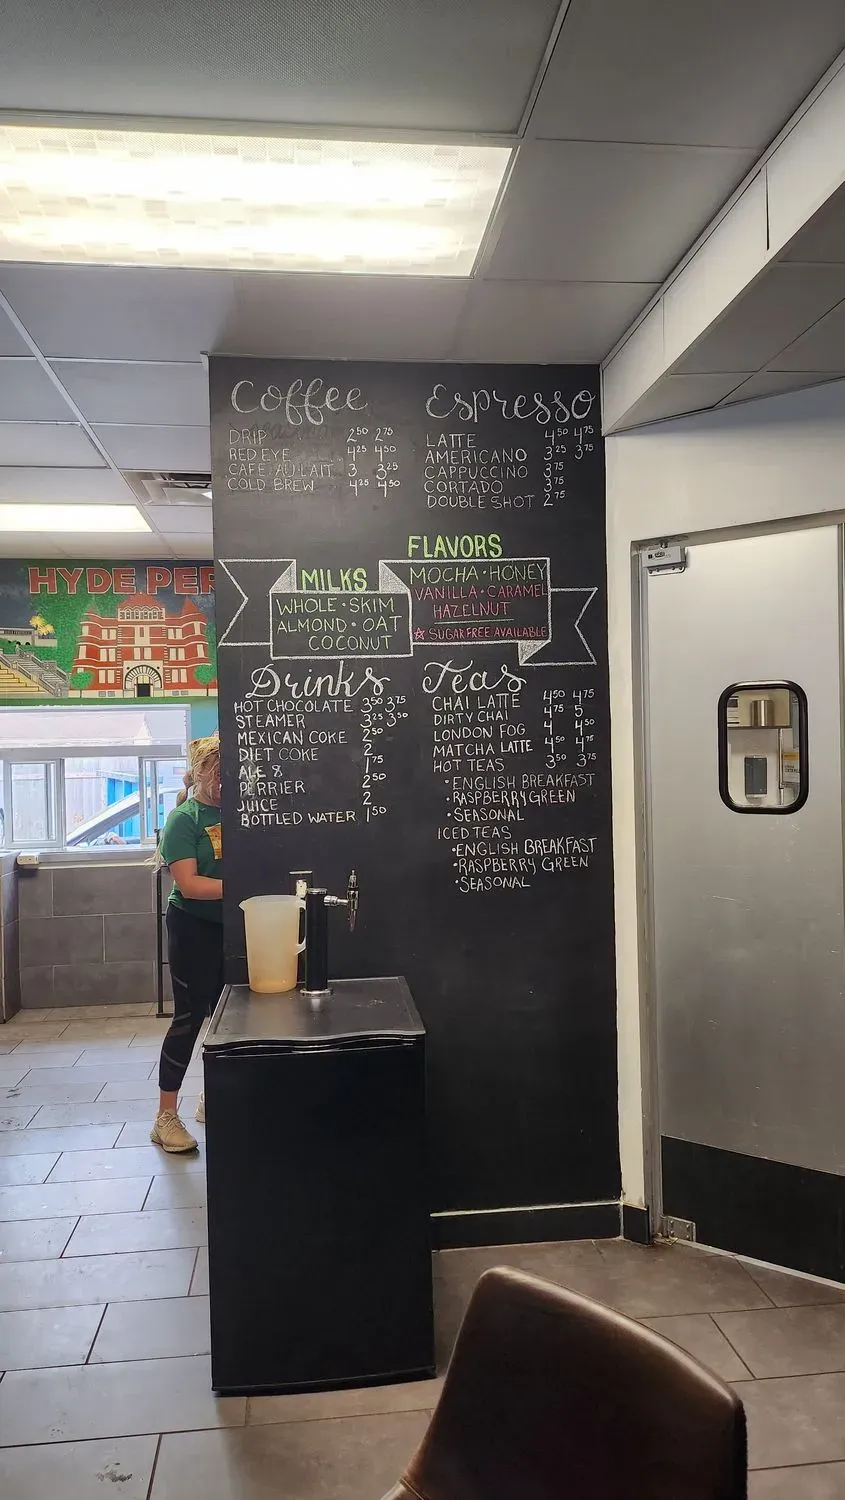 Coffee
DRIP 2⁵⁰ 2⁷⁵
RED EYE 4²⁵ 4⁵⁰
CAFE AU LAIT 3 3²⁵
COLD BREW 4²⁵ 4⁵⁰
Espresso
LATTE 4⁵⁰ 4⁷⁵
AMERICANO 3²⁵ 3⁷⁵
CAPPUCCINO 3⁷⁵
CORTADO 3⁷⁵
DOUBLE SHOT 2⁷⁵
MILKS
WHOLE • SKIM
ALMOND • OAT
COCONUT
FLAVORS
MOCHA • HONEY
VANILLA • CARAMEL
HAZELNUT
☆ SUGAR FREE AVAILABLE
HYDE PER
Drinks
HOT CHOCOLATE 3⁵⁰ 3⁷⁵
STEAMER 3²⁵ 3⁵⁰
MEXICAN COKE 2⁵⁰
DIET COKE 2
ALE 8 1⁷⁵
PERRIER 2⁵⁰
JUICE 2
BOTTLED WATER 1⁵⁰
Teas
CHAI LATTE 4⁵⁰ 4⁷⁵
DIRTY CHAI 4⁷⁵ 5
LONDON FOG 4 4⁵⁰
MATCHA LATTE 4⁵⁰ 4⁷⁵
HOT TEAS 3⁵⁰ 3⁷⁵
• ENGLISH BREAKFAST
• RASPBERRY GREEN
• SEASONAL
ICED TEAS
• ENGLISH BREAKFAST
• RASPBERRY GREEN
• SEASONAL